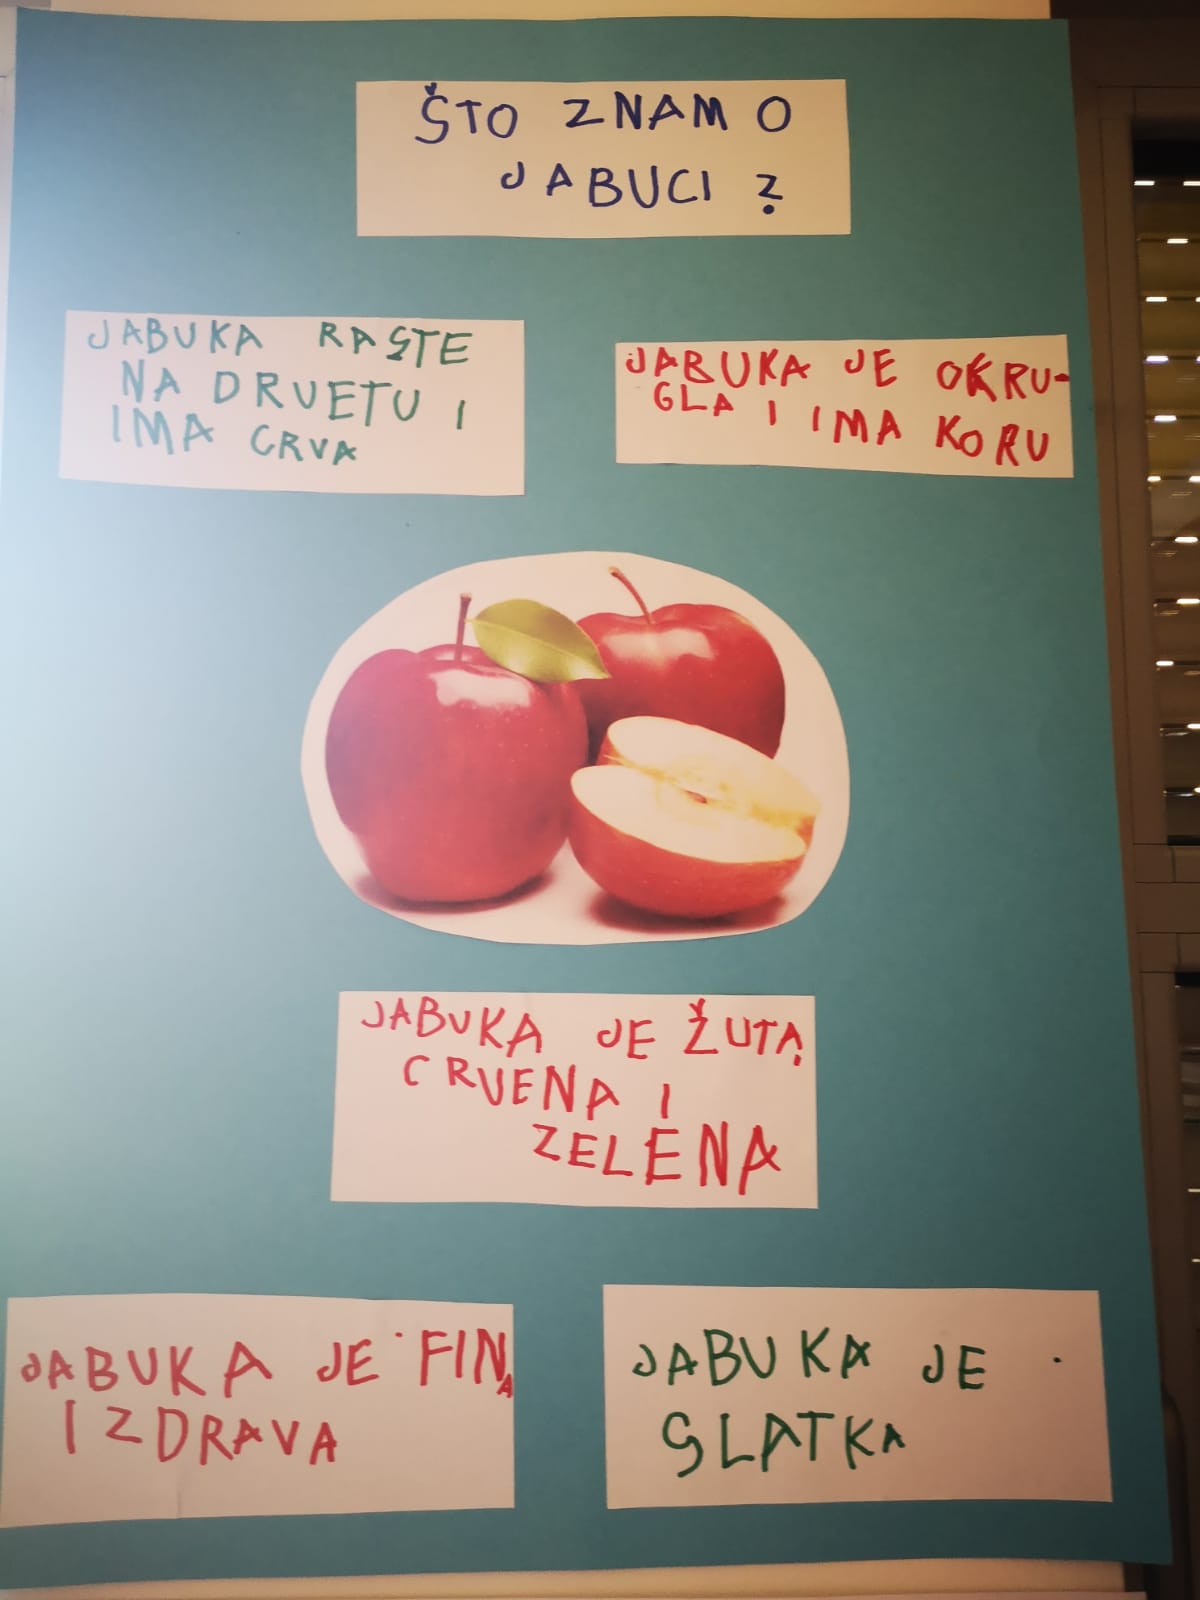 ŠTO ZNAM O
JABUCI?
JABUKA RASTE
NA DRVETU I
IMA CRVA
JABUKA JE OKRU-
GLA I IMA KORU
JABUKA JE ŽUTA,
CRVENA I
ZELENA
JABUKA JE FINA
I ZDRAVA
JABUKA JE
SLATKA